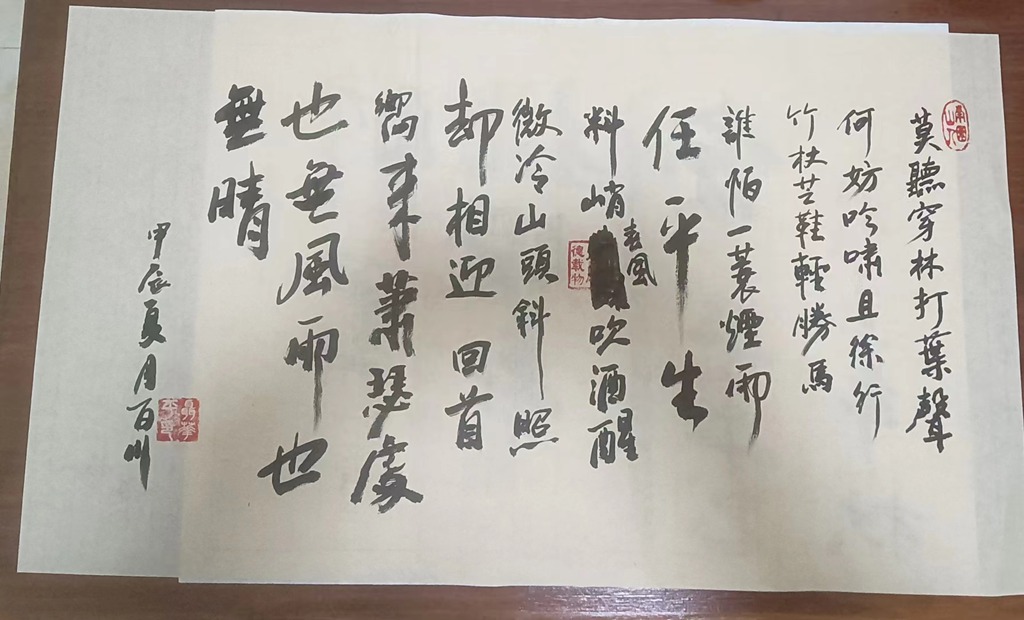 莫聽穿林打葉聲
何妨吟嘯且徐行
竹杖芒鞋輕勝馬
誰怕一蓑煙雨
任平生
料峭春風吹酒醒
微冷山頭斜照
却相迎回首
嚮来蕭瑟處
也無風雨也
無晴
甲辰夏月百川
德載物